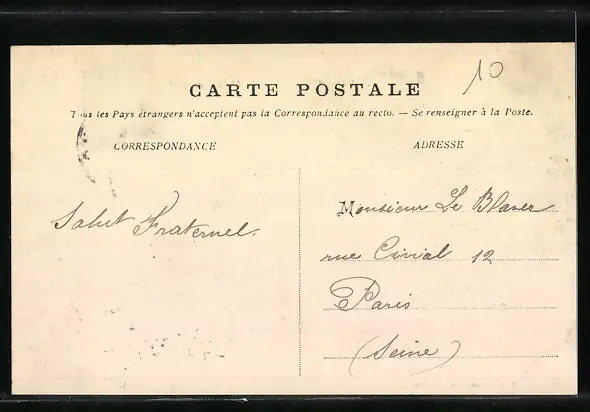 10
CARTE POSTALE
Tous les Pays étrangers n'acceptent pas la Correspondance au recto. — Se renseigner à la Poste.
CORRESPONDANCE
ADRESSE
Salut Fraternel.
Monsieur Le Blavec
rue Civial 12
Paris
(Seine)